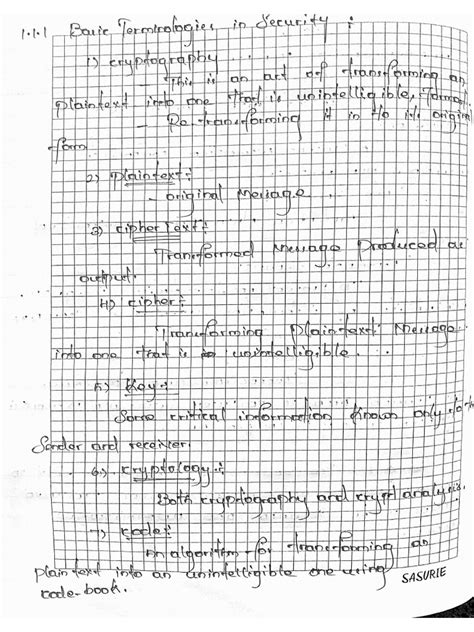 1.1.1 Basic Terminologies in Security :
1) cryptography
- This is an act of transforming an
plaintext into one that is unintelligible format
- Re-transforming it in to its original
form
2) plaintext:
- original Message
3) cipher text:
Transformed Message produced as
output.
4) cipher:
Transforming plaintext Message
into one that is unintelligible.
5) Key:
Some critical information known only to
Sender and receiver.
6) cryptology:
Both cryptography and crypt analysis.
7) code:
An algorithm for transforming an
plaintext into an unintelligible one using
code-book.
SASURIE